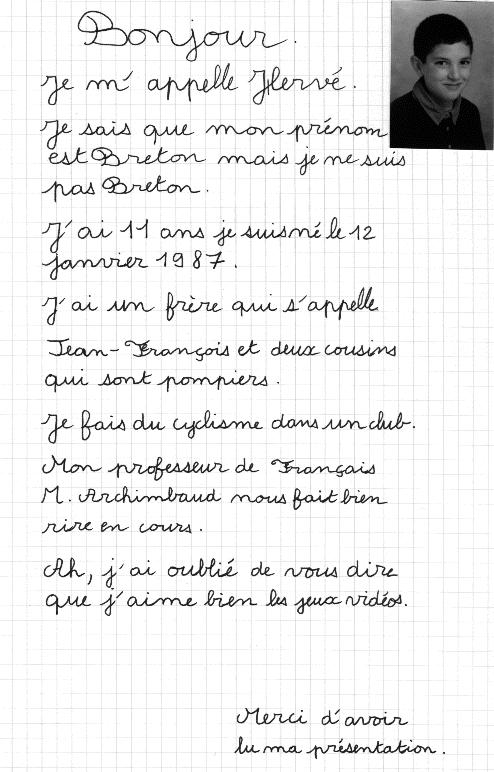 Bonjour.
Je m'appelle Hervé.
Je sais que mon prénom
est Breton mais je ne suis
pas Breton.
J'ai 11 ans je suis né le 12
janvier 1987.
J'ai un frère qui s'appelle
Jean-François et deux cousins
qui sont pompiers.
Je fais du cyclisme dans un club.
Mon professeur de Français
M. Archimbaud nous fait bien
rire en cours.
Ah, j'ai oublié de vous dire
que j'aime bien les jeux vidéos.
Merci d'avoir
lu ma présentation.